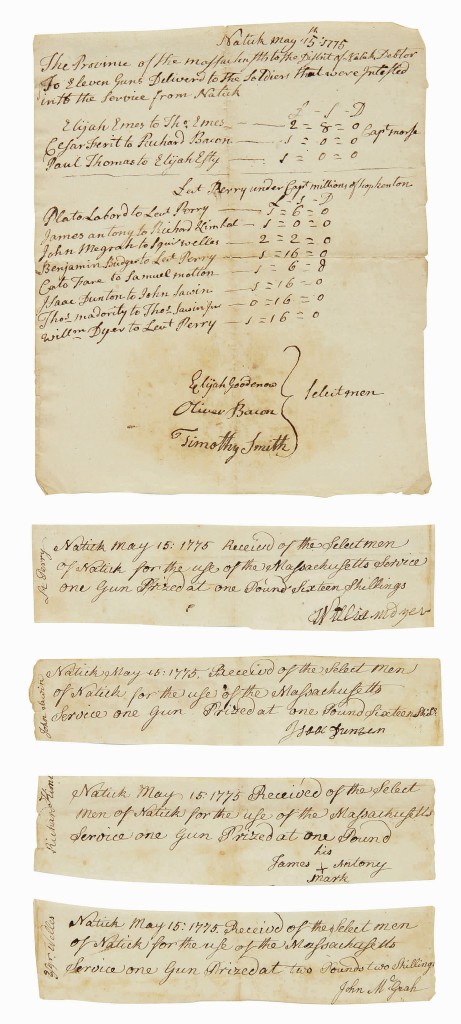 Natick may 15th: 1775
The Province of the massachusetts to the District of Natick Debtor
To Eleven Guns Deliverd to the Soldiers that were Inlested
into the Service from Natick
£ - S - D
Elijah Emes to Thos. Emes - 2 = 8 = 0 Capt morse
Cesar Ferit to Richard Bacon - 1 = 0 = 0
Paul Thomas to Elijah Esty - 1 = 0 = 0
Leut Perry under Capt millions of hopkenton
£ S D
Plato Labord to Leut Perry - 1 = 6 = 0
James antony to Richard Kimbal - 1 = 0 = 0
John Megrah to Squir welles - 2 = 2 = 0
Benjamin Budge to Leut Perry - 1 = 16 = 0
Cato Fare to Samuel motton - 1 = 6 = 8
Isaac Dunton to John Sawin - 1 = 16 = 0
Thos madority to Thos Sawin Jur - 0 = 16 = 0
Willm Dyer to Leut Perry - 1 = 16 = 0
Elijah Goodenow
Oliver Bacon
Timothy Smith
Selectmen
Lt Perry
Natick May 15: 1775 Received of the Select men
of Natick for the use of the Massachusetts Service
one Gun Prized at one Pound Sixteen Shillings
William dyer
John Sawin
Natick May 15: 1775. Received of the Select Men
of Natick for the use of the Massachusetts
Service one Gun Prized at one Pound Sixteen Shills
Isaac Dunten
Richard Kimel
Natick May 15: 1775 Received of the Select
Men of Natick for the use of the Massachusetts
Service one Gun Prized at one Pound
his
James + Antony
mark
Sqr. Welles
Natick May 15: 1775. Received of the Select men
of Natick for the use of the Massachusetts
Service one Gun Prized at two Pounds two Shillings
John McGrah